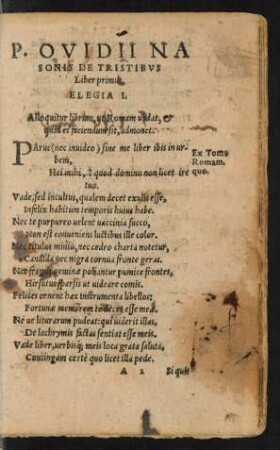 P. OVIDII NA
SONIS DE TRISTIBVS
Liber primus.
ELEGIA I.
Alloquitur librum, ut Romam uadat, &
quid ei faciendum sit, admonet.
PArue (nec inuideo) sine me liber ibis in ur-
bem,
Ex Tomo
Romam.
Hei mihi, quod domino non licet ire
quo.
tuo.
Vade, sed incultus, qualem decet exulis esse,
Infelix habitum temporis huius habe.
Nec te purpureo uelent uaccinia succo,
Non est conueniens luctibus ille color.
Nec titulus minio, nec cedro charta notetur,
Candida nec nigra cornua fronte geras.
Nec fragili geminæ poliantur pumice frontes,
Hirsutus sparsis ut uideare comis.
Felices ornent hæc instrumenta libellos:
Fortunæ memorem te decet esse meæ.
Ne ue liturarum pudeat: qui uiderit illas,
De lachrymis factas sentiat esse meis.
Vade liber, uerbisq; meis loca grata saluta,
Contingam certè quo licet illa pede.
A 2 Si quis